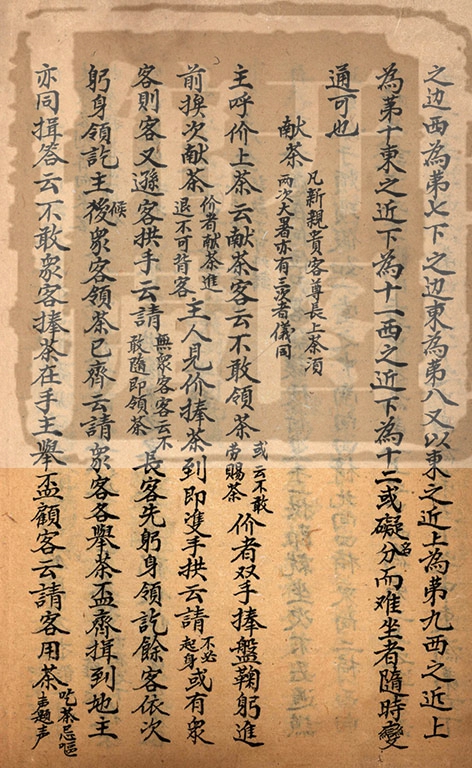 之边西為第七下之边東為第八又以東之近上為第九西之近上
為第十東之近下為十一西之近下為十二或礙名分而难坐者隨時變
通可也
献茶凡新親貴客尊長上茶湏两次大署亦有三次者儀同
主呼价上茶云献茶客云不敢領茶或云不敢劳賜茶价者双手捧盤鞠躬進
前挨次献茶价者献茶進退不可背客主人見价捧茶到即進手拱云請不必起身或有衆
客則客又遜客拱手云請無衆客客云不敢隨即領茶長客先躬身領訖餘客依次
躬身領訖主候後衆客領茶已齊云請衆客各舉茶盃齊揖到地主
亦同揖答云不敢衆客捧茶在手主舉盃顧客云請客用茶吃茶忌嘔声颏声